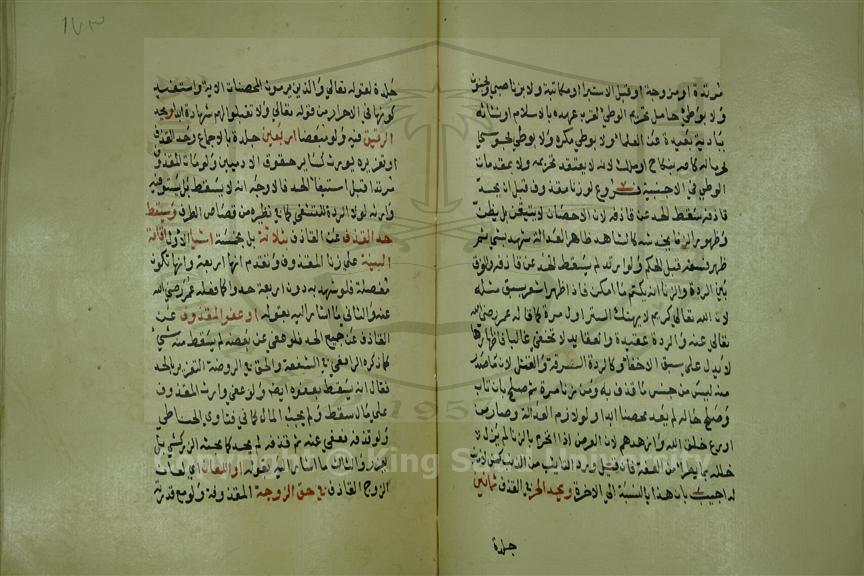 مرتدة او مزوجة او قبل الاستبرا او مكاتبة ولا بزنا صبي ومجنون
ولا بوطئ جاهل بتحريم الوطئ لقرب عهده بالاسلام او نشأته
ببادية بعيدة عن العلما ولا بوطي مكره ولا بوطي مجوسي
محرما له كامه بنكاح او ملك لانه لا يعتقد تحريمه ولا بمقدمات
الوطي في الاجنبية فروع لو زنا مقذوف قبل ان يحد
قاذفه سقط الحد عن قاذفه لان الاحصان لا يتيقن بل يظن
وظهور الزنا يخدشه كالشاهد ظاهر العدالة شهد بشي ثم
ظهر فسقه قبل الحكم ولو ارتد لم يسقط الحد عن قاذفه والفرق
بين الردة والزنا انه يكتم ما امكن فاذا ظهر اشعر بسبق مثله
لان الله تعالي كريم لا يهتك الستر اول مرة كما قاله عمر رضي الله
تعالي عنه والردة عقيدة والعقايد لا تخفي غالبا فاظهارها
لا يدل علي سبق الاخفا وكالردة السرقة والقتل لان ما صدر
منه ليس من جنس ما قذف به ومن زنا مرة ثم صلح بان تاب
وصلح حاله لم يعد محصنا ابدا ولو لازم العدالة وصار من
اورع خلق الله وازهدهم لان العرض اذا انخرم بالزنا لم يزل
خلله بما يطرأ من العفة فان قيل ورد التائب من الذنب كمن لا ذنب
له اجيب بان هذا بالنسبة الي الاخرة ويحد الحر في القذف ثمانين
جلدة
١٧٣
جلدة لقوله تعالي والذين يرمون المحصنات الاية واستفيد
كونها في الاحرار من قوله تعالي ولا تقبلوا لهم شهادة ابدا ويحد
الرقيق فيه ولو مبعضا اربعين جلدة بالاجماع وحد القذف
او تعزيره يورث كساير حقوق الادميين ولو مات المقذوف
مرتدا قبل استيفا الحد فالاوجه انه لا يسقط بل يستوفيه
وارثه لولا الردة للتشفي كما في نظيره من قصاص الطرف ويسقط
حد القذف عن القاذف بثلاثة بل بخمسة اشيا الاول اقامة
البينة علي زنا المقذوف وتقدم انها اربعة وانها تكون
مفصلة فلو شهد به دون اربعة حدوا كما فعله عمر رضي الله
عنه والثاني ما اشار اليه بقوله او عفو المقذوف عن
القاذف عن جميع الحد فلو عفي عن بعضه لم يسقط منه شئ
كما ذكره الرافعي في الشفعة والحق في الروضة التعزير بالحد
فقال انه يسقط بعفوه ايضا ولو عفي وارث المقذوف
علي مال سقط ولم يجب المال كما في فتاوي الحناطي
ولو قذفه فعفي عنه ثم قذفه لم يحد كما بحثه الزركشي بل
يعزر والثالث ما اشار اليه بقوله او اللعان اي لعان
الزوج القاذف في حق الزوجة المقذوفة ولو مع قدرته